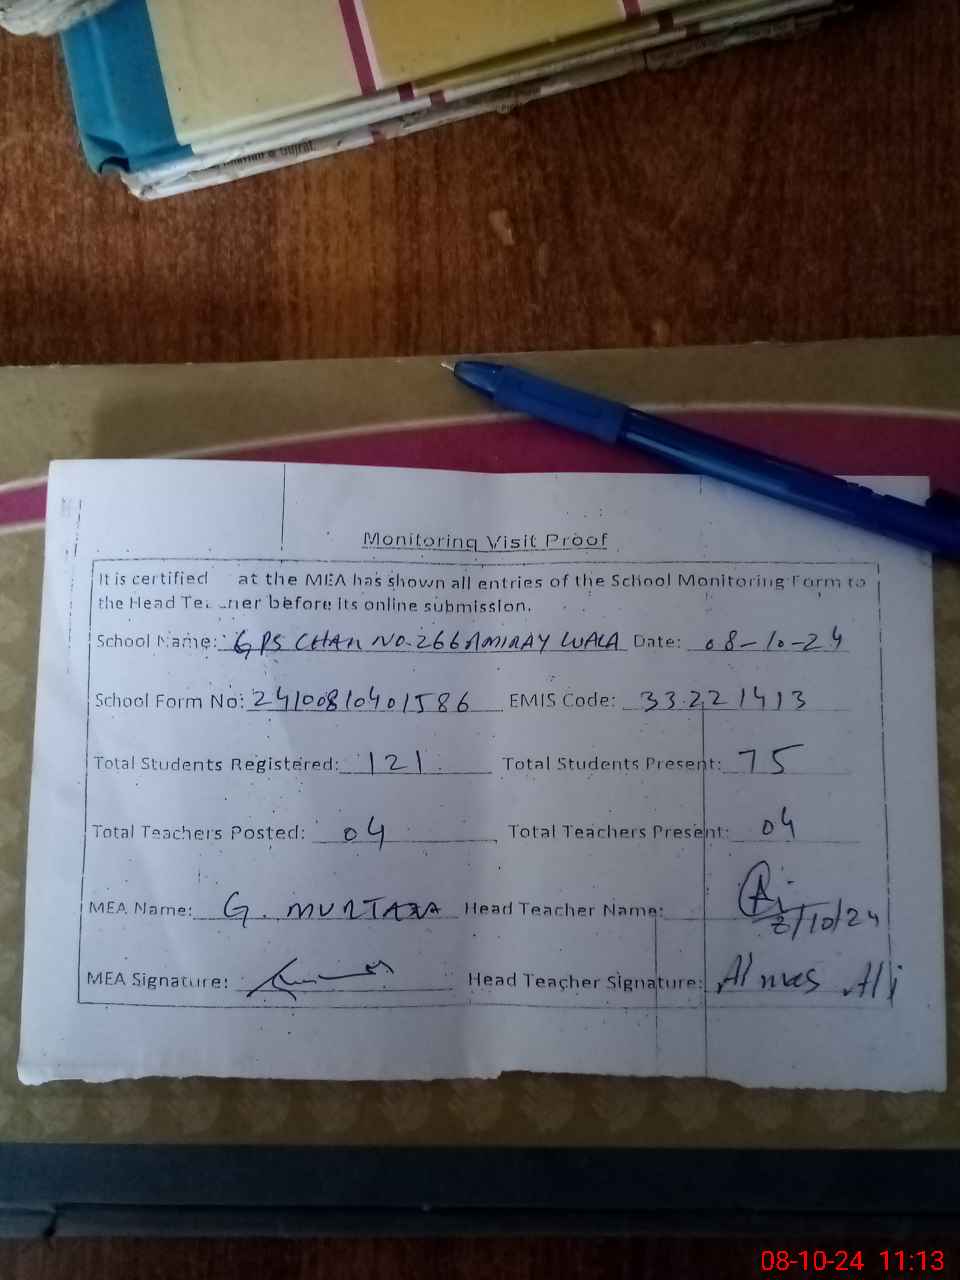 Gujrat.
Monitoring Visit Proof
It is certified at the MEA has shown all entries of the School Monitoring Form to
the Head Teacher before its online submission.
School Name: GPS CHAK NO.266 AMIRAY WALA Date: 08-10-24
School Form No: 24100810401586 EMIS Code: 33221413
Total Students Registered: 121 Total Students Present: 75
Total Teachers Posted: 04 Total Teachers Present: 04
MEA Name: G. MURTAZA Head Teacher Name:
8/10/24
MEA Signature: Head Teacher Signature: Almas Ali
08-10-24 11:13